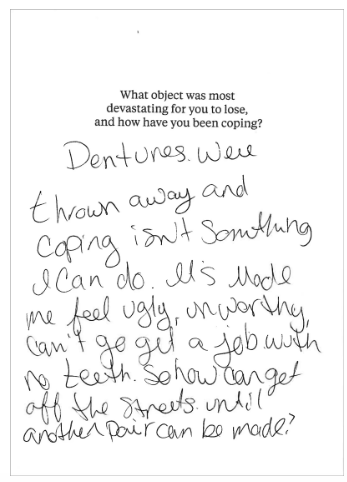 What object was most
devastating for you to lose,
and how have you been coping?
Dentures. Were
thrown away and
Coping isn't Something
I Can do. It's Made
me feel ugly, unworthy,
can't go get a job with
no teeth. So how can get
off the streets. until
another pair can be made?